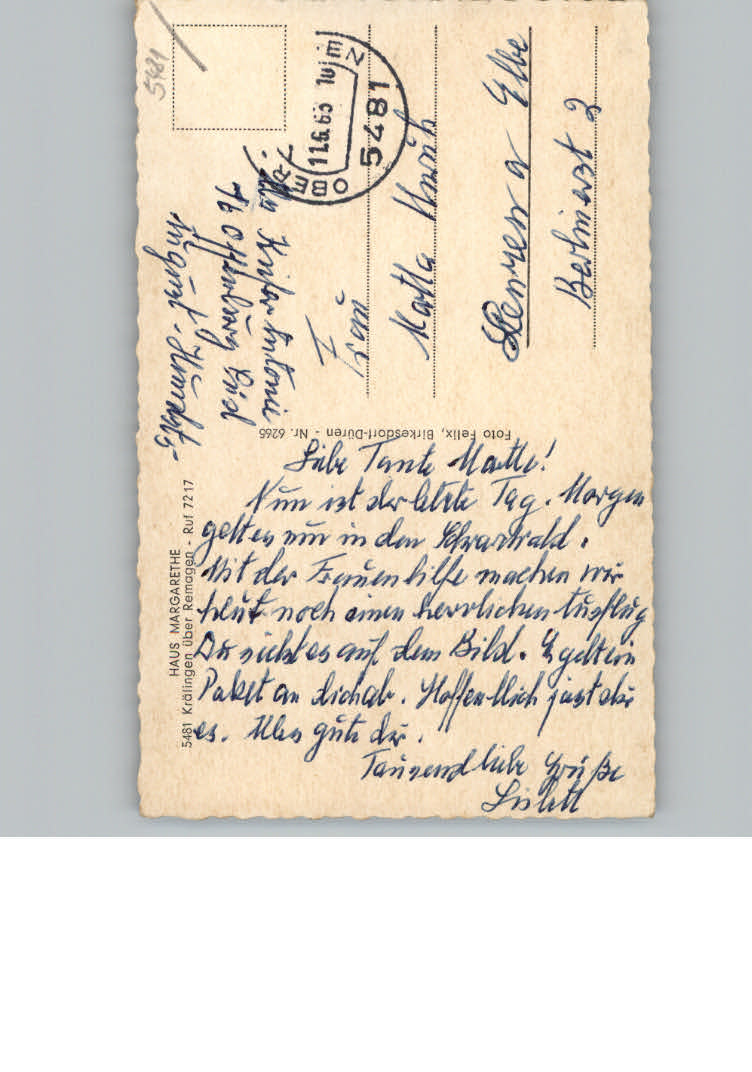 HAUS MARGARETHE
5481 Krälingen über Remagen - Ruf 7217
Foto Felix, Birkesdorf-Düren - Nr. 6265
5481
5481
11.6.63
OBER
Liebe Tante Martha!
Nun ist der letzte Tag. Morgen
geht es nun in den Schwarzwald.
Mit der Frauenhilfe machen wir
heut noch einen herrlichen Ausflug
Du siehst es auf dem Bild. Es geht ein
Paket an dich ab. Hoffentlich passt dir
es. Alles gute dir.
Tausend liebe Grüße
Lislett
76 Offenburg Süd
I
Frau
Martha
Lenzen a Elbe
Berlinerst 2